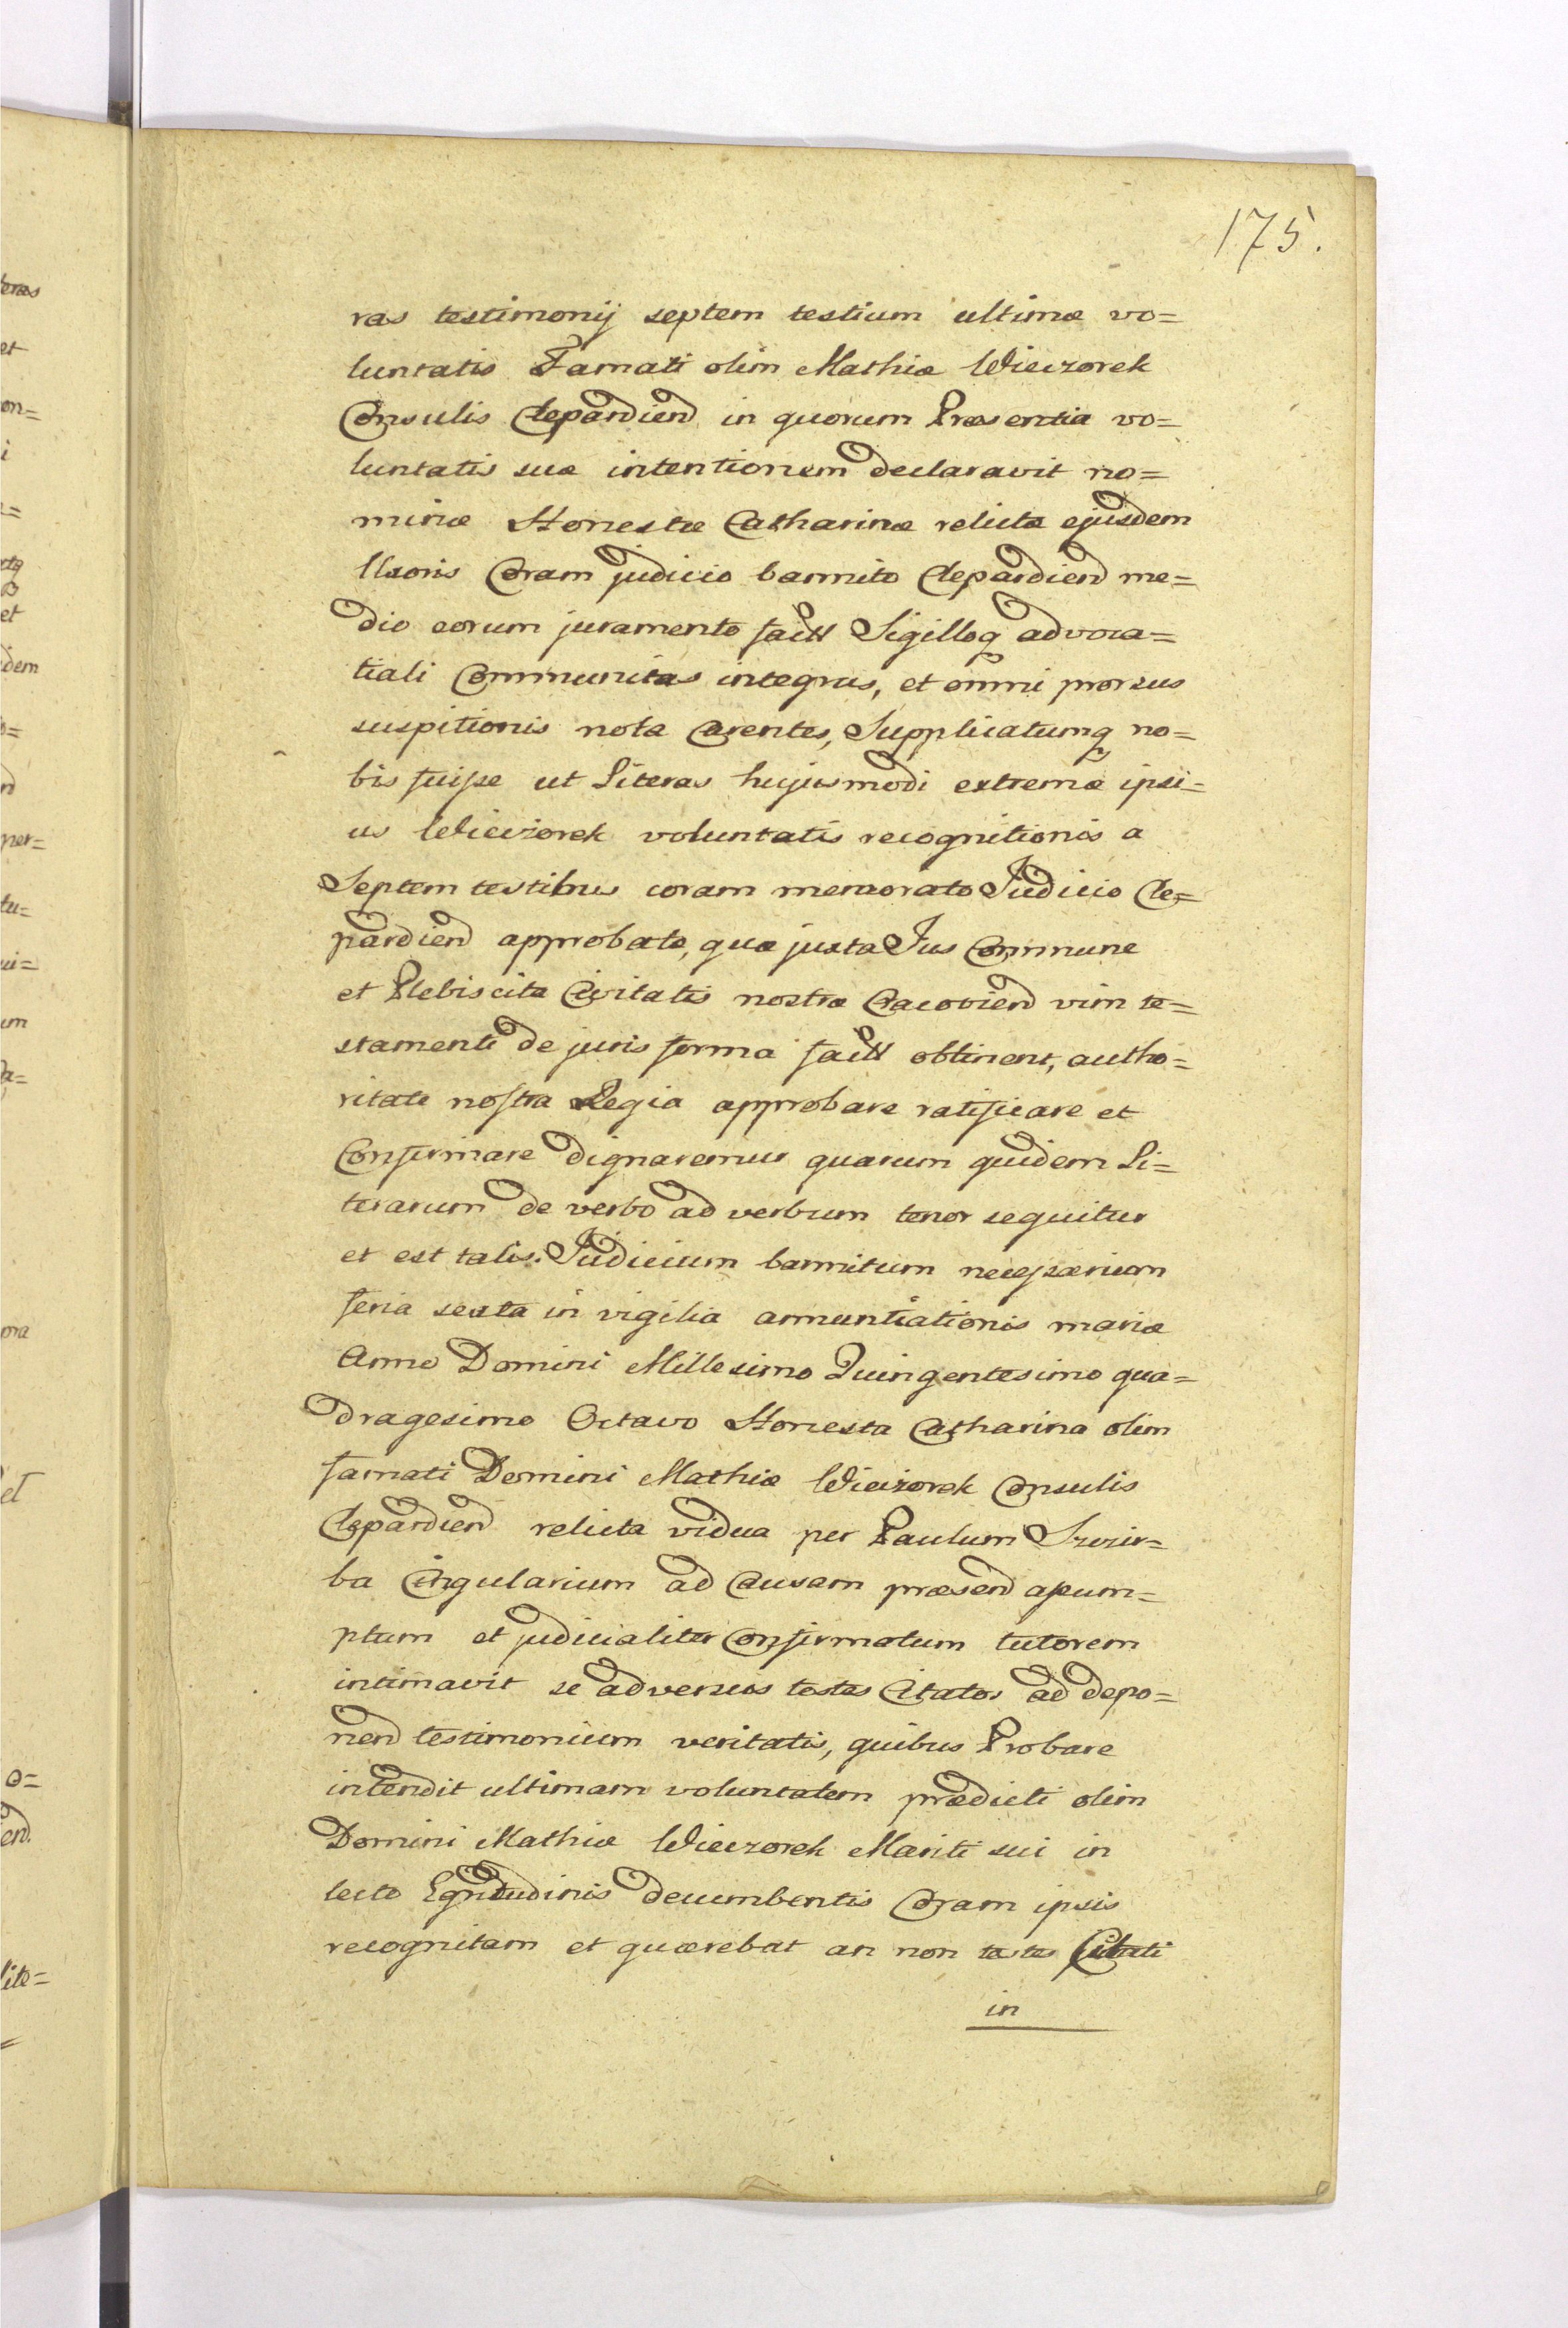 175.
ras testimonij septem testium ultimæ vo=
luntatis Famati olim Mathiæ Wieczorek
Consulis Clepardien in quorum Præsentia vo=
luntatis suæ intentionem declaravit no=
minæ Honestæ Catharinæ relictæ ejusdem
Uxoris Coram judicio bannito Clepardien me=
dio eorum juramento fact Sigilloq advoca=
tiali Communitas integras, et omni prorsus
suspitionis nota Carentes, Supplicatumq no=
bis fuisse ut Literas hujusmodi extremæ ipsi=
us Wieczorek voluntatis recognitionis a
Septem testibus coram memorato Judicio Cle=
pardien approbata, quæ juxta Jus Commune
et Plebiscita Civitatis nostræ Cracovien vim te=
stamenti de juris forma fact obtinent, autho=
ritate nostra Regia approbare ratificare et
Confirmare dignaremur quarum quidem Li=
terarum de verbo ad verbum tenor sequitur
et est talis. Judicium bannitum necessarium
feria sexta in vigilia annuntiationis mariæ
Anno Domini Millesimo Quingentesimo qua=
dragesimo Octavo Honesta Catharina olim
famati Domini Mathiæ Wieczorek Consulis
Clepardien relicta vidua per Paulum Szczir=
ba Cingularium ad Causam præsen assum=
ptum et judicialiter Confirmatum tutorem
intimavit se adversus testes Citatos ad depo=
nen testimonium veritatis, quibus Probare
intendit ultimam voluntatem prædicti olim
Domini Mathiæ Wieczorek Mariti sui in
lecto Egritudinis decumbentis Coram ipsis
recognitam et quærebat an non testes Citati
in
teras
et
on=
i
=
ctq
et
idem
o=
per=
tu=
ui=
um
a=
ora
et
o=
en.
lite=